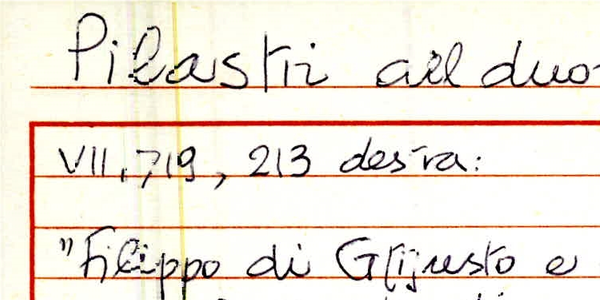 Pilastri al duo
VII.719, 213 destra:
"Filippo di G[i]usto e